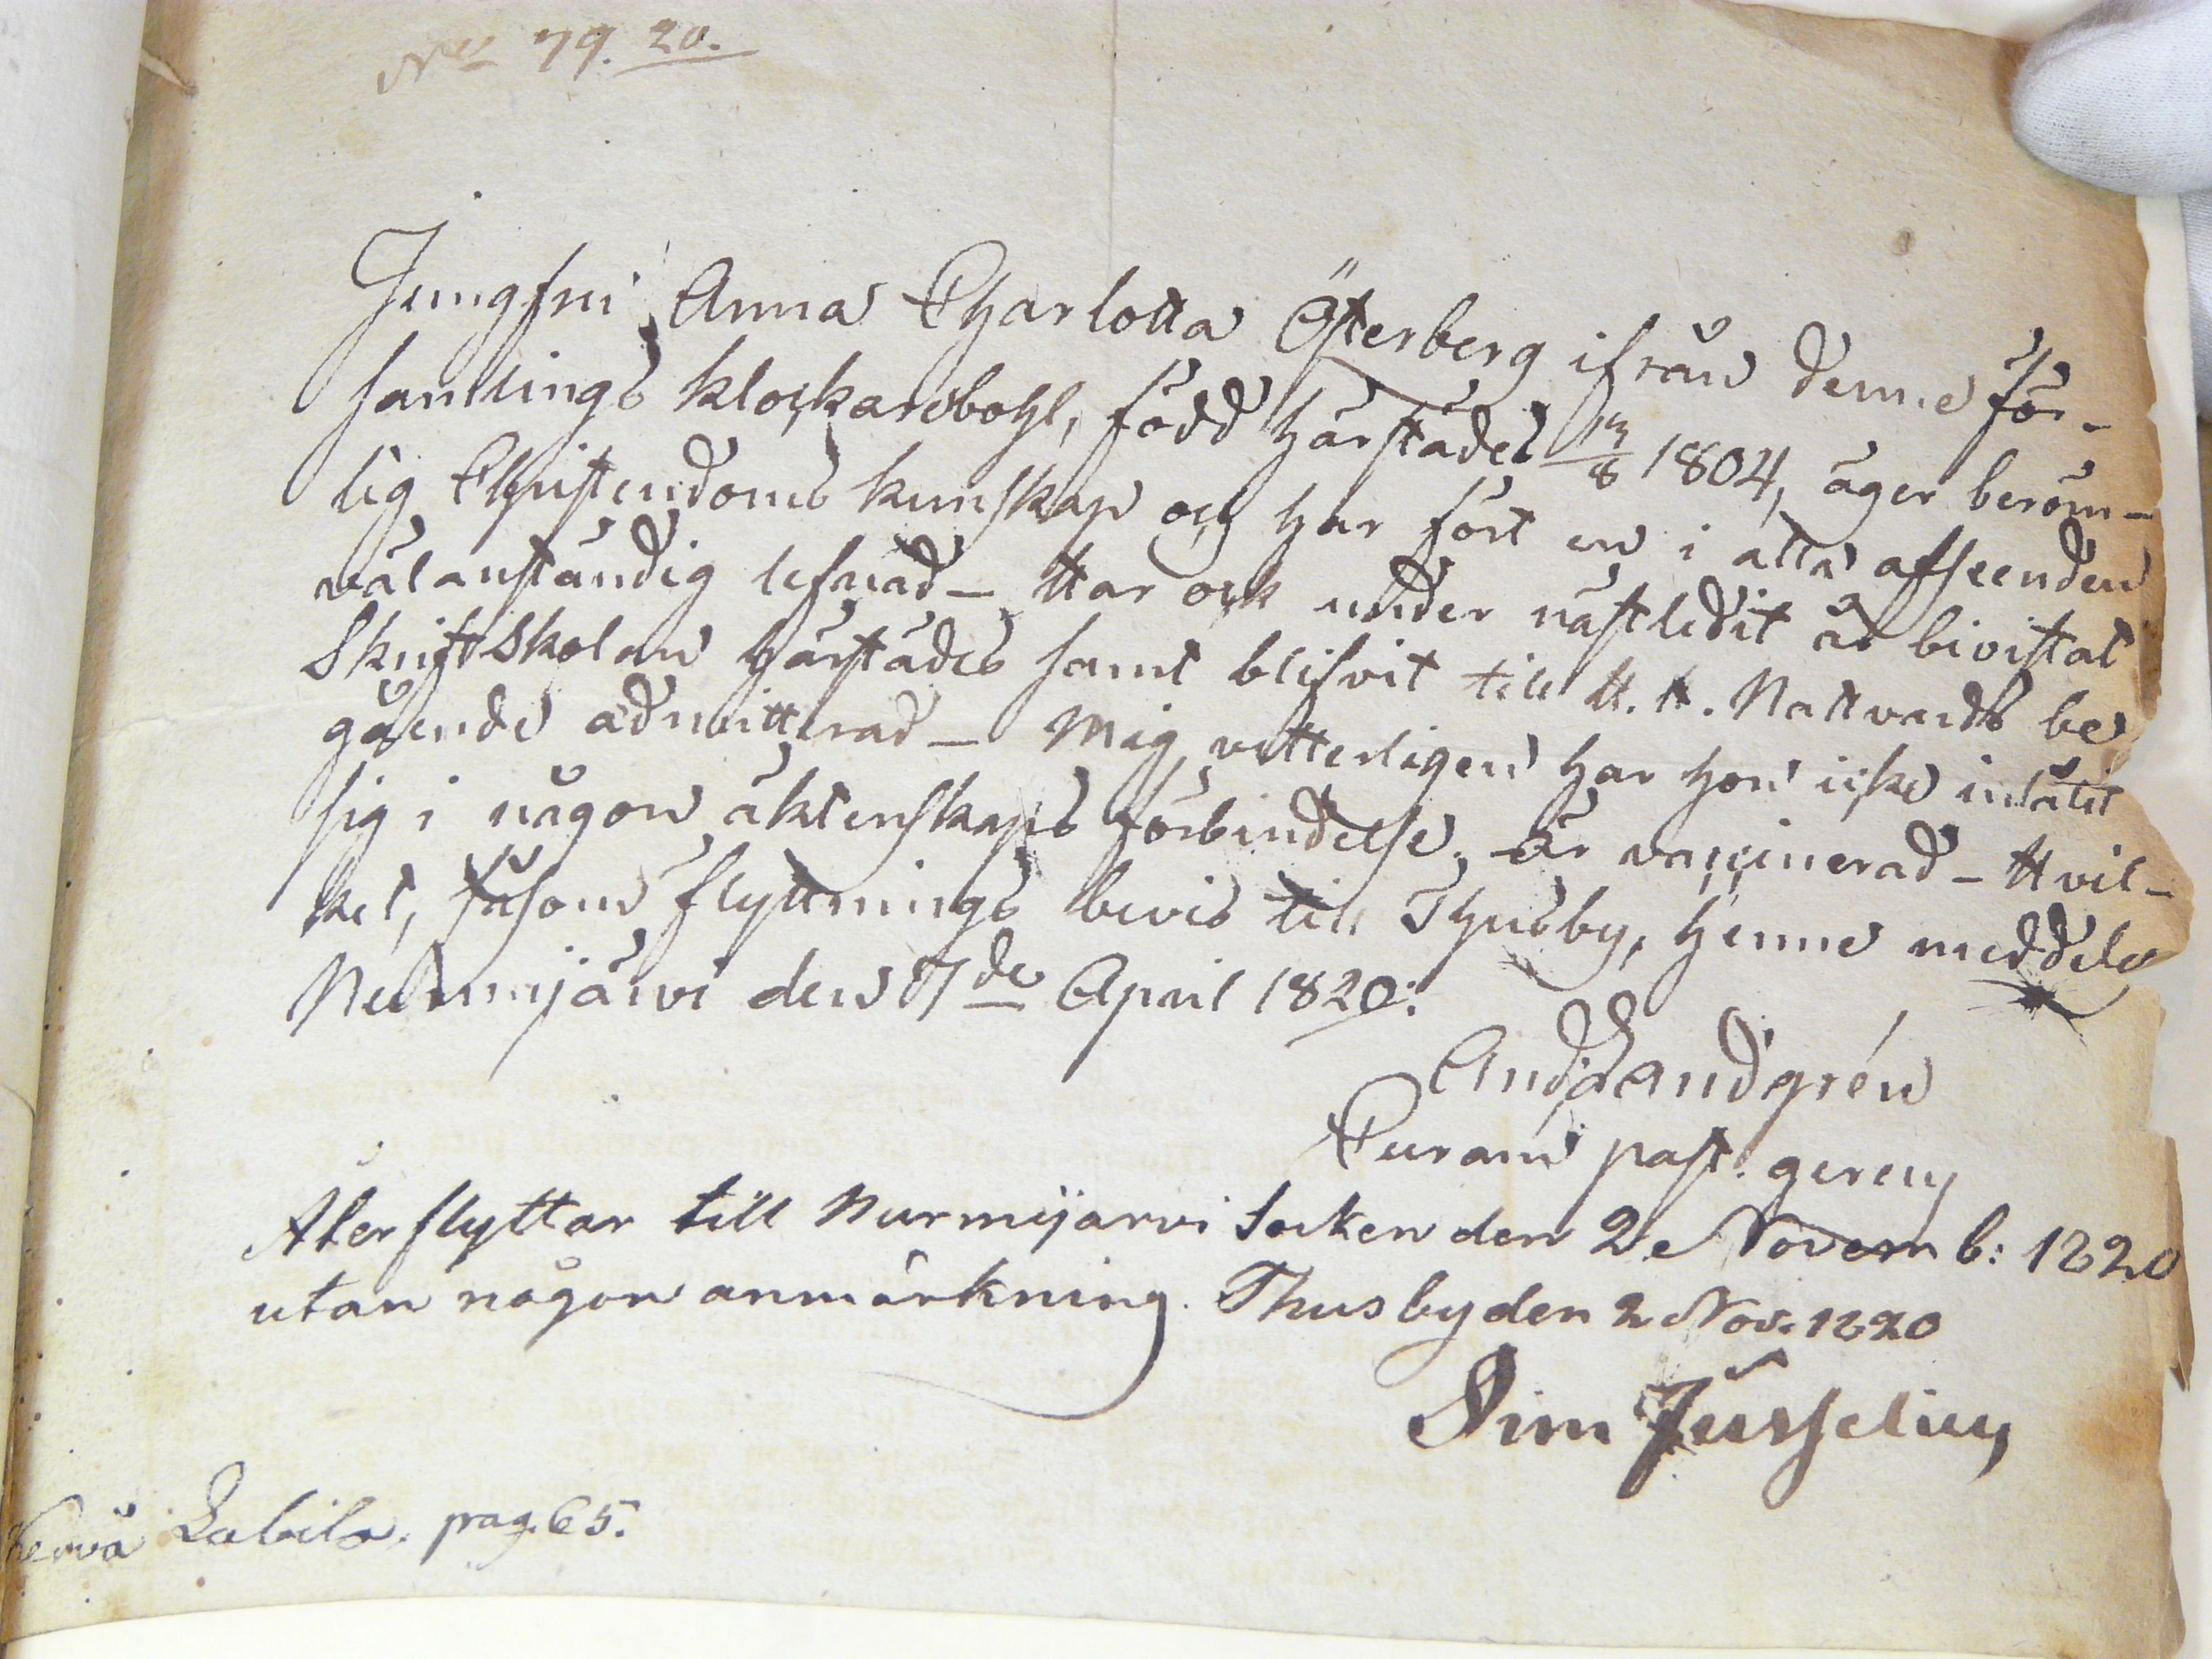 No 79. 20.
Jungfru Anna Charlotta Österberg ifrån denne för-
samlings klockarebohl, född härstädes 13/8 1804, äger beröm-
lig Christendoms kunskap och har fört en i alla afseenden
välanständig lefnad – Har ock under nästledit år bivistat
Skriftskolan härstädes samt blifvit till H. H. Nattvards be
gående admitterad – Mig vetterligen har hon icke inlåtit
sig i någon äktenskaps förbindelse, är vaccinerad – Hvil-
ket, såsom flyttnings bevis till Thusby, henne meddelas
Nurmijärvi den 7de April 1820:
And Landgrén
Curam past. gerens
Återflyttar till Nurmijärvi Socken den 2e Novemb: 1820
utan någon anmärkning. Thusby den 2 Nov. 1820
Sim Jusselius
Kervå Labila. pag. 65.